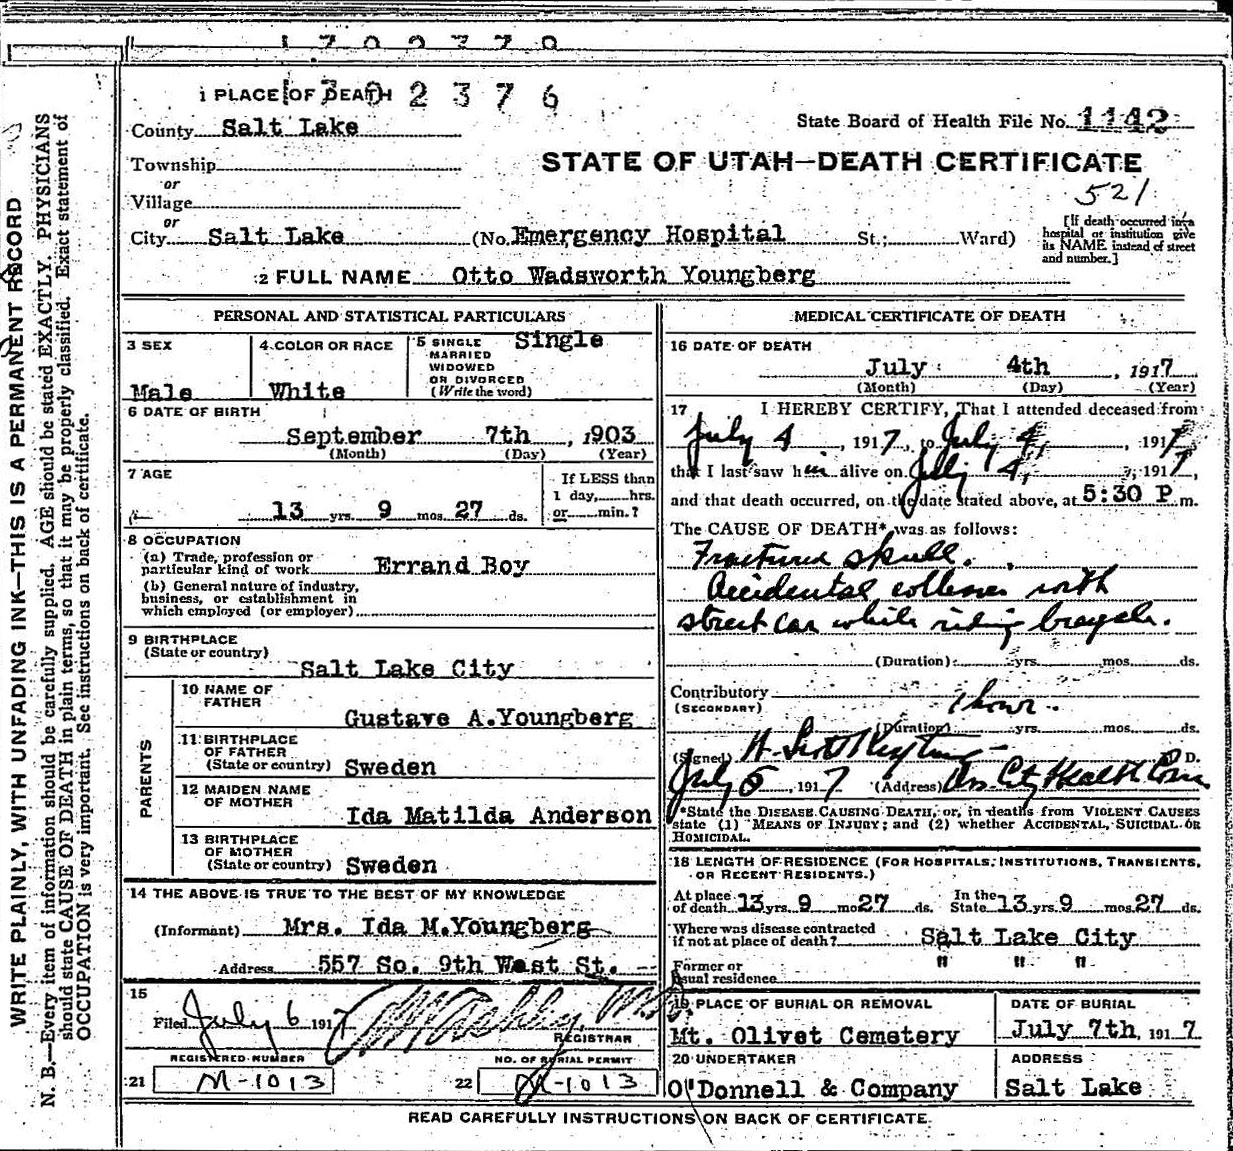 1302376
1 PLACE OF DEATH
County Salt Lake
State Board of Health File No. 1142
Township
STATE OF UTAH—DEATH CERTIFICATE
or
Village
521
or
City Salt Lake (No. Emergency Hospital St.; Ward)
[If death occurred in a hospital or institution give its NAME instead of street and number.]
2 FULL NAME Otto Wadsworth Youngberg
PERSONAL AND STATISTICAL PARTICULARS
3 SEX
Male
4 COLOR OR RACE
White
5 SINGLE
MARRIED
WIDOWED
OR DIVORCED
(Write the word)
Single
6 DATE OF BIRTH
September 7th, 1903
(Month) (Day) (Year)
7 AGE
13 yrs. 9 mos. 27 ds.
If LESS than
1 day, hrs.
or min.?
8 OCCUPATION
(a) Trade, profession or
particular kind of work Errand Boy
(b) General nature of industry,
business, or establishment in
which employed (or employer)
9 BIRTHPLACE
(State or country)
Salt Lake City
PARENTS
10 NAME OF
FATHER
Gustave A.Youngberg
11 BIRTHPLACE
OF FATHER
(State or country) Sweden
12 MAIDEN NAME
OF MOTHER
Ida Matilda Anderson
13 BIRTHPLACE
OF MOTHER
(State or country) Sweden
14 THE ABOVE IS TRUE TO THE BEST OF MY KNOWLEDGE
(Informant) Mrs. Ida M.Youngberg
Address 557 So. 9th West St.
15
Filed July 6 1917
REGISTRAR
REGISTERED NUMBER
21 M-1013
NO. OF BURIAL PERMIT
22 M-1013
MEDICAL CERTIFICATE OF DEATH
16 DATE OF DEATH
July 4th, 1917
(Month) (Day) (Year)
17 I HEREBY CERTIFY, That I attended deceased from
July 4, 1917, to July 4, 1917,
that I last saw him alive on July 4, 1917,
and that death occurred, on the date stated above, at 5:30 P m.
The CAUSE OF DEATH* was as follows:
Fractured skull.
Accidental collision with
street car while riding bicycle.
(Duration) yrs. mos. ds.
Contributory
(SECONDARY)
1 hour.
(Duration) yrs. mos. ds.
(Signed) M. D.
July 5, 1917 (Address) City Health Com
*State the DISEASE CAUSING DEATH, or, in deaths from VIOLENT CAUSES
state (1) MEANS OF INJURY; and (2) whether ACCIDENTAL, SUICIDAL OR
HOMICIDAL.
18 LENGTH OF RESIDENCE (FOR HOSPITALS, INSTITUTIONS, TRANSIENTS,
OR RECENT RESIDENTS.)
At place
of death 13 yrs. 9 mo 27 ds.
In the
State 13 yrs. 9 mos. 27 ds.
Where was disease contracted
if not at place of death? Salt Lake City
Former or
usual residence " " "
19 PLACE OF BURIAL OR REMOVAL
Mt. Olivet Cemetery
DATE OF BURIAL
July 7th, 1917
20 UNDERTAKER
O'Donnell & Company
ADDRESS
Salt Lake
READ CAREFULLY INSTRUCTIONS ON BACK OF CERTIFICATE.
WRITE PLAINLY, WITH UNFADING INK—THIS IS A PERMANENT RECORD
N. B.—Every item of information should be carefully supplied. AGE should be stated EXACTLY. PHYSICIANS
should state CAUSE OF DEATH in plain terms, so that it may be properly classified. Exact statement of
OCCUPATION is very important. See instructions on back of certificate.